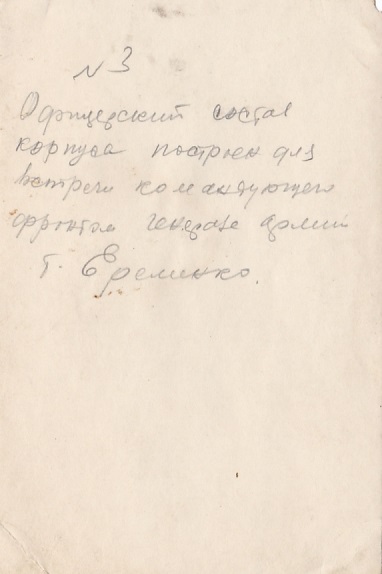 N 3
Офицерский состав
корпуса построен для
встречи командующего
фронтом генерала армии
т. Еременко.